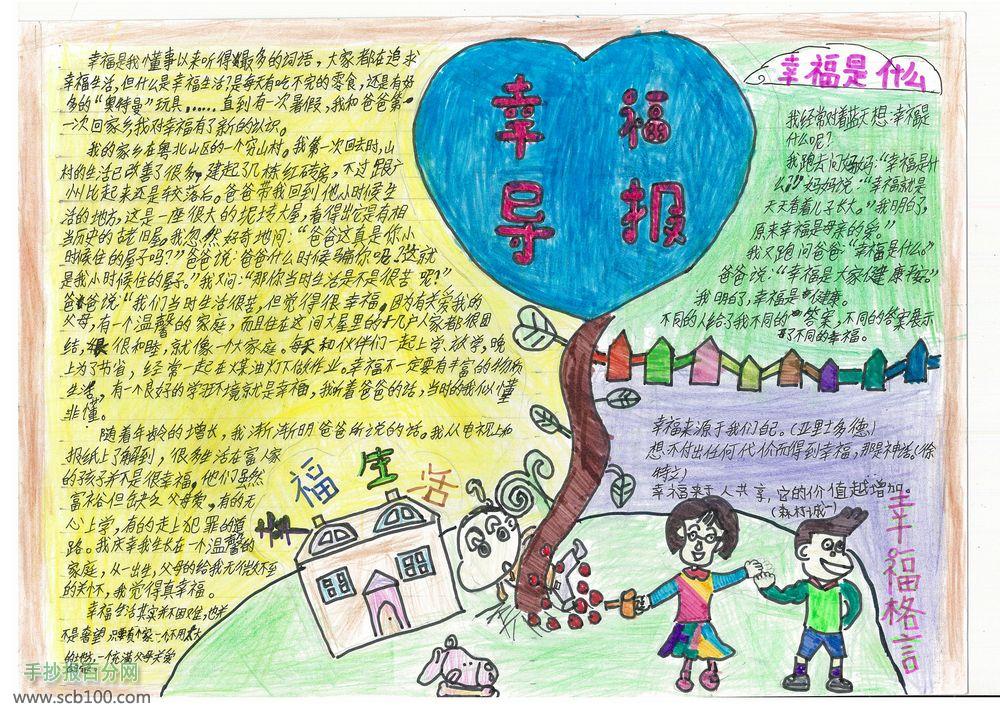 幸福是我懂事以来听得最多的词语，大家都在追求
幸福生活，但什么是幸福生活？是每天有吃不完的零食，还是有好
多的“奥特曼”玩具……直到有一次暑假，我和爸爸第一
一次回家乡我对幸福有了新的认识。
我的家乡在粤北山区的一个穷山村。我第一次回去时，山
村的生活已改善了很多，建起了几栋红砖房，不过跟广
州比起来还是较落后。爸爸带我回到他小时候生
活的地方，这是一座很大的坭砖大屋，看得出它是有相
当历史的古老旧屋。我忽然好奇地问：“爸爸这真是你小
时候住的屋子吗？”爸爸说：爸爸什么时候骗你呢？这就
是我小时候住的屋子。”我又问：“那你当时生活是不是很苦呢？”
爸爸说：“我们当时生活很苦，但觉得很幸福。因为有关爱我的
父母，有一个温馨的家庭，而且住在这间大屋里的十几户人家都很团
结，很和睦，就像一个大家庭。每天和伙伴们一起上学，放学，晚
上为了节省，经常一起在煤油灯下做作业。幸福不一定要有丰富的物质
生活，有一个良好的学习环境就是幸福，我听着爸爸的话，当时的我似懂
非懂。
随着年龄的增长，我渐渐明爸爸所说的话。我从电视上和
报纸上了解到，很多生活在富人家
的孩子并不是很幸福。他们虽然
富裕但缺乏父母爱，有的无
心上学，有的走上犯罪的道
路。我庆幸我生长在一个温馨的
家庭，从一出生，父母的给我无微不至
的关怀，我觉得真幸福。
幸福生活其实并不困难，也并
不是奢望，只要有个家一个不用太大
的地方，一个充满父母关爱
幸福
导报
幸福是什么
我经常对着蓝天想：幸福是
什么呢？
我跑去问妈妈：“幸福是什
么？”妈妈说：“幸福就是
天天看着儿子长大。”我明白了，
原来幸福是母亲的爱。
我又跑问爸爸：“幸福是什么。”
爸爸说：“幸福是大家健康平安。”
我明白了，幸福是健康。
不同的人给了我不同的答案，不同的答案展示
了不同的幸福。
幸福来源于我们自己。（亚里士多德）
想不付出任何代价而得到幸福，那是神话。（徐
特立）
幸福来于人共享，它的价值越增加。
（森村诚一）
幸福格言
福生活
手抄报百分网
www.scb100.com